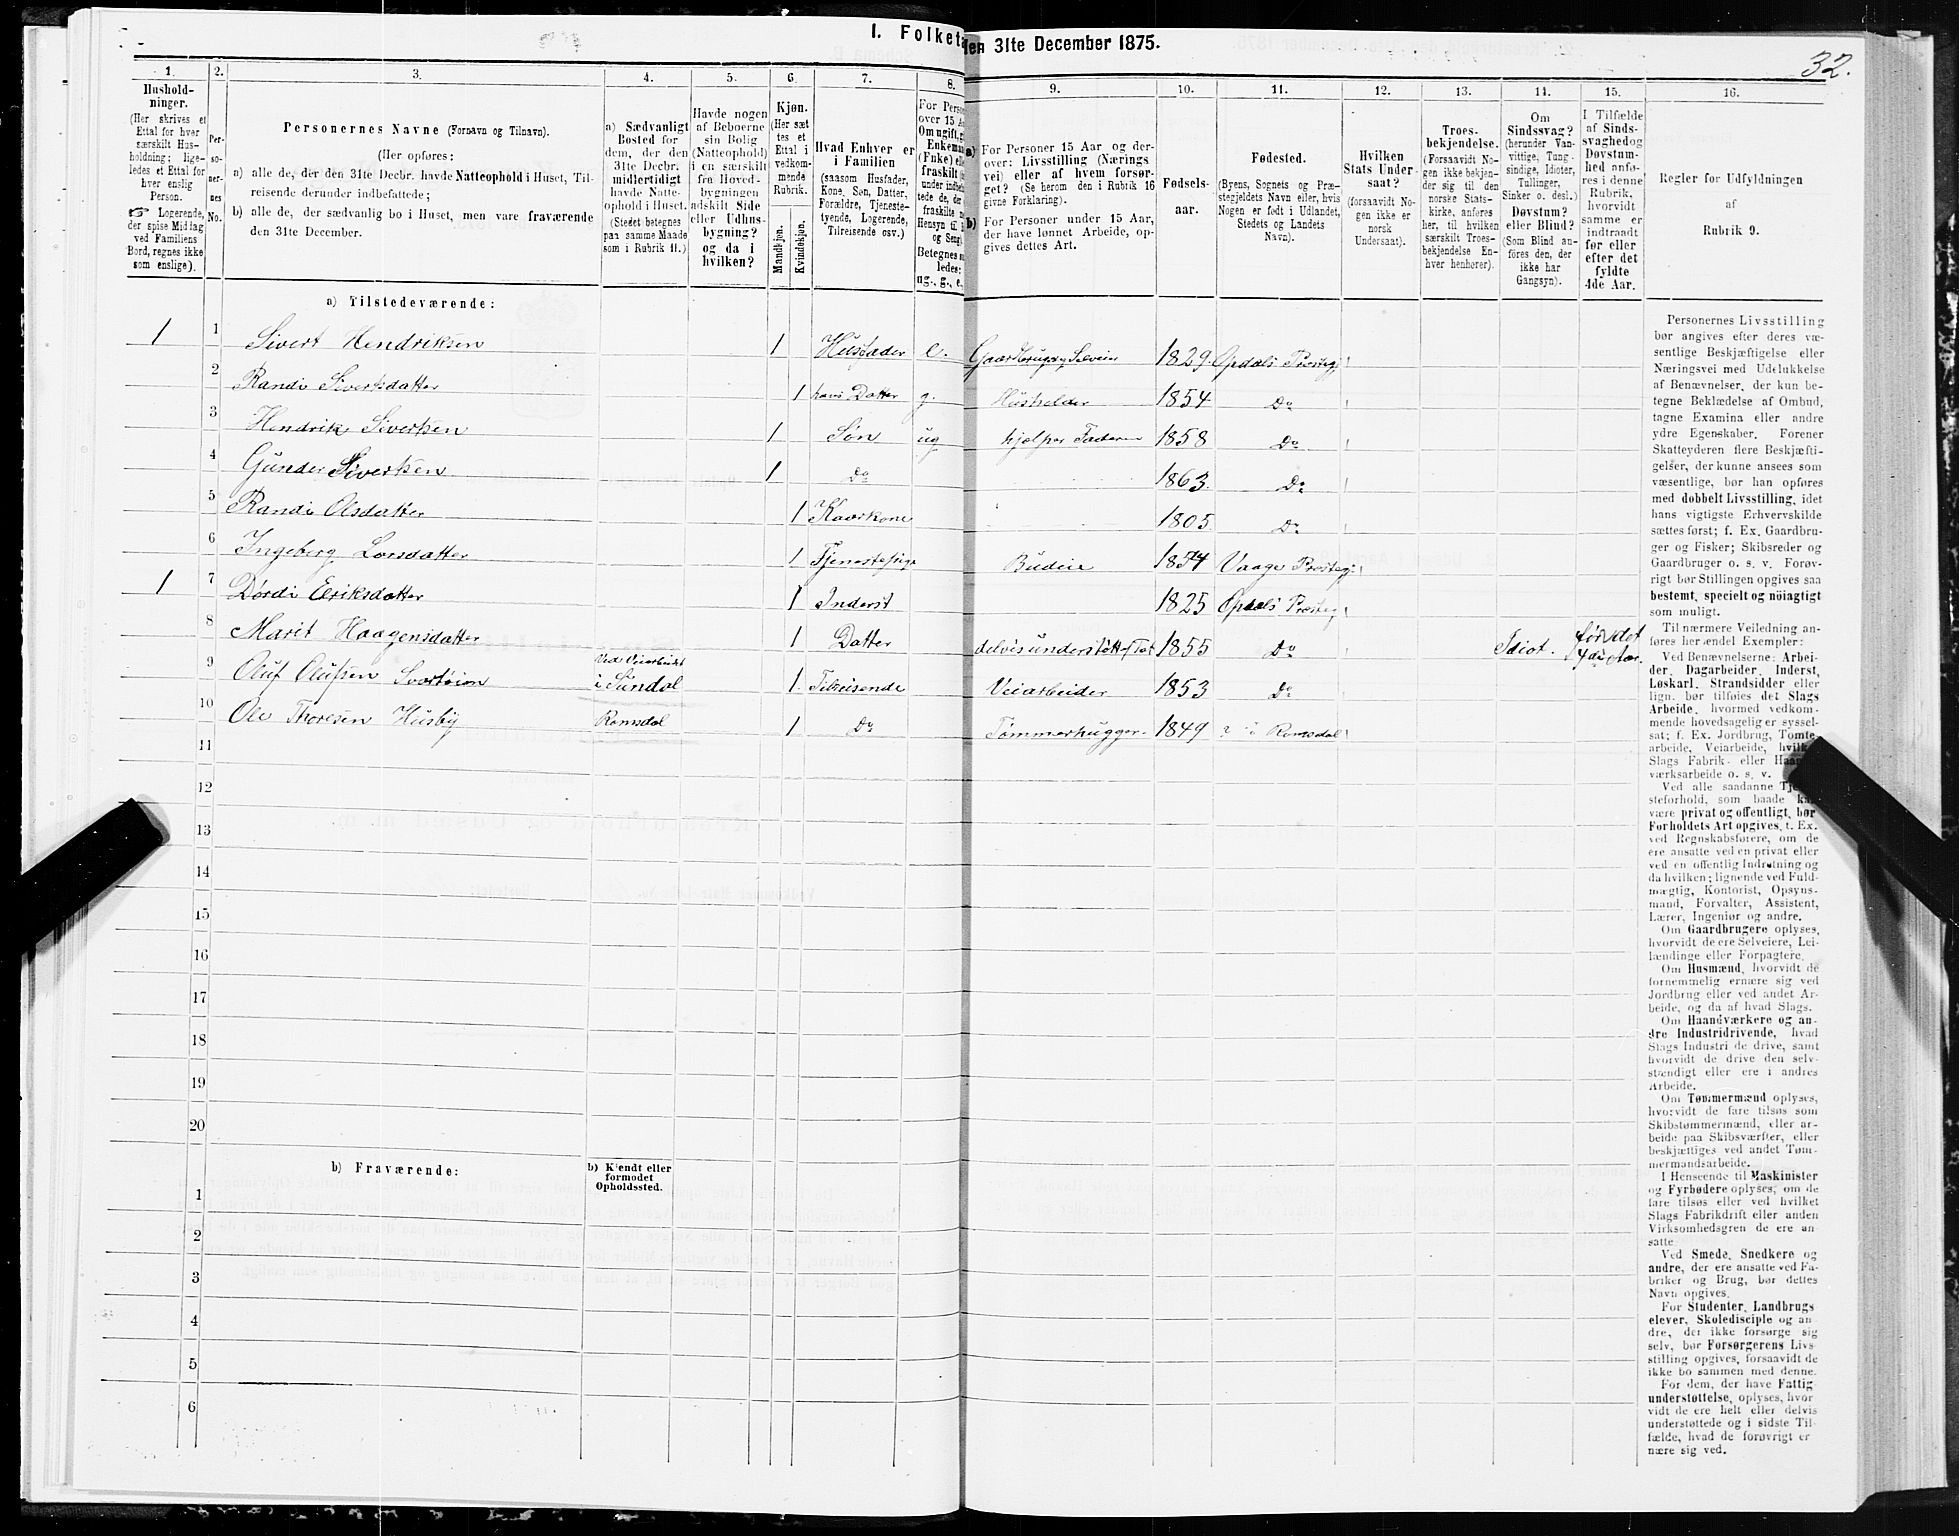 I. Folketæ
den 31te December 1875.
32.
1.
2.
3.
4.
5.
6.
7.
8.
9.
10.
11.
12.
13.
14.
15.
16.
Hushold-
ninger.
(Her skrives et
Ettal for hver
særskilt Hus-
holdning; lige-
ledes et Ettal for
hver enslig
Person.
☞ Logerende,
der spise Middag
ved Familiens
Bord, regnes ikke
som enslige).
Per-
so-
ner-
nes
No.
Personernes Navne (Fornavn og Tilnavn).
(Her opføres:
a) alle de, der den 31te Decbr. havde Natteophold i Huset, Til-
reisende derunder indbefattede;
b) alle de, der sædvanlig bo i Huset, men vare fraværende
den 31te December.
a) Sædvanligt
Bosted for
dem, der den
31te Decbr.
midlertidigt
havde Natte-
ophold i Huset.
(Stedet betegnes
paa samme Maade
som i Rubrik 11.)
Havde nogen
af Beboerne
sin Bolig
(Natteophold)
i en særskilt
fra Hoved-
bygningen
adskilt Side
eller Udhus-
bygning?
og da i
hvilken?
Kjøn.
(Her sæt-
tes et
Ettal i
vedkom-
mende
Rubrik.
Mandkjøn.
Kvindekjøn.
Hvad Enhver er
i Familien
(saasom Husfader,
Kone, Søn, Datter,
Forældre, Tjeneste-
tyende, Logerende,
Tilreisende osv.)
For Perso
over 15 Aa
Om ugift, g
Enkeman
(Enke) elle
fraskilt (
under indbe
tede de, der
fraskilte
Hensyn til
og Seng)
Betegnes s
ledes:
ug., g., e.,
a)
For Personer 15 Aar og der-
over: Livsstilling (Nærings
vei) eller af hvem forsør-
get? (Se herom den i Rubrik 16
givne Forklaring).
b)
For Personer under 15 Aar,
der have lønnet Arbeide, op-
gives dettes Art.
Fødsels-
aar.
Fødested.
(Byens, Sognets og Præ-
stegjeldets Navn eller, hvis
Nogen er født i Udlandet,
Stedets og Landets
Navn).
Hvilken
Stats Under-
saat?
(forsaavidt No-
gen ikke er
norsk
Undersaat).
Troes-
bekjendelse.
(Forsaavidt No-
gen ikke bekjen-
der sig til den
norske Stats-
kirke, anføres
her, til hvilken
særskilt Troes-
bekjendelse En-
hver henhører).
Om
Sindssvag?
(herunder Van-
vittige, Tung-
sindige, Idioter,
Tullinger,
Sinker o. desl.)
Døvstum?
eller Blind?
(Som Blind an-
føres den, der
ikke har
Gangsyn).
I Tilfælde
af Sinds-
svaghed og
Døvstum-
hed anfø-
res i denne
Rubrik,
hvorvidt
samme er
indtraadt
før eller
efter det
fyldte
4de Aar.
Regler for Udfyldningen
af
Rubrik 9.
a) Tilstedeværende:
1 1 Sivert Hendriksen 1 Husfader e. Gaardbruger Selveier 1829. Opdals Præstegj.
2 Randi Sivertsdatter 1 hans Datter g. Husholder 1854 Do
3 Hendrik Sivertsen 1 Søn ug hjelper Faderen 1858 Do
4 Gunder Sivertsen 1 Do 1863. Do
5 Randi Olsdatter 1 Kaarkone 1805. Do
6 Ingeberg Larsdatter 1 Tjenestepige Budeie 1854 Vaage Præstegj.
1 7 Dordi Eriksdatter 1 Inderst 1825 Opdals Præstegj
8 Marit Haagensdatter 1 Datter delvis understøttet 1855 Do Idiot. før det 4de Aar.
9 Oluf Olufsen Svartøien Ved Veiarbeidet i Sundal 1. Tilreisende Veiarbeider 1853 Do
10 Ole Thoresen Husby Romsdal 1 Do Tømmerhugger 1849 ? i Romsdal
11
12
13
14
15
16
17
18
19
20
b) Fraværende:
b) Kjendt eller
formodet
Opholdssted.
1
2
3
4
5
6
Personernes Livsstilling
bør angives efter deres væ-
sentlige Beskjæftigelse eller
Næringsvei med Udelukkelse
af Benævnelser, der kun be-
tegne Beklædelse af Ombud,
tagne Examina eller andre
ydre Egenskaber. Forener
Skatteyderen flere Beskjæfti-
gelser, der kunne ansees som
væsentlige, bør han opføres
med dobbelt Livsstilling, idet
hans vigtigste Erhvervskilde
sættes først; f. Ex. Gaardbru-
ger og Fisker; Skibsreder og
Gaardbruger o. s. v. Forøv-
rigt bør Stillingen opgives saa
bestemt, specielt og nöiagtigt
som muligt.
Til nærmere Veiledning an-
føres her endel Exempler:
Ved Benævnelserne: Arbei-
der, Dagarbeider, Inderst,
Løskarl, Strandsidder eller
lign. bør tilføies det Slags
Arbeide, hvormed vedkom-
mende hovedsagelig er syssel-
sat; f. Ex. Jordbrug, Tomte-
arbeide, Veiarbeide, hvilket
Slags Fabrik- eller Haand-
værksarbeide o. s. v.
Ved alle saadanne Tje-
steforhold, som baade kan
være privat og offentligt, bør
Forholdets Art opgives, t. Ex.
ved Regnskabsførere, om de
ere ansatte ved en privat eller
ved en offentlig Indretning og
da hvilken; lignende ved Fuld-
mægtig, Kontorist, Opsyns-
mand, Forvalter, Assistent,
Lærer, Ingeniør og andre.
Om Gaardbrugere oplyses,
hvorvidt de ere Selveiere, Lei-
lændinge eller Forpagtere.
Om Husmænd, hvorvidt de
fornemmelig ernære sig ved
Jordbrug eller ved andet Ar-
beide, og da af hvad Slags.
Om Haandværkere og an-
dre Industridrivende, hvad
Slags Industri de drive, samt
hvorvidt de drive den selv-
stændigt eller ere i andres
Arbeide.
Om Tømmermænd oplyses,
hvorvidt de fare tilsøs som
Skibstømmermænd, eller ar-
beide paa Skibsværfter, eller
beskjæftiges ved andet Tøm-
mermandsarbeide.
I Henseende til Maskinister
og Fyrbødere oplyses, om de
fare tilsøs eller ved hvilket
Slags Fabrikdrift eller anden
Virksomhedsgren de ere an-
satte
Ved Smede, Snedkere og
andre, der ere ansatte ved Fa-
briker og Brug, bør dettes
Navn opgives.
For Studenter, Landbrugs
elever, Skoledisciple og an-
dre, der ikke forsørge sig
selv, bør Forsørgerens Livs-
stilling opgives, forsaavidt de
ikke bo sammen med denne.
For dem, der have Fattig-
understøttelse, oplyses, hvor-
vidt de ere helt eller delvis
understøttede og i sidste Til-
fælde, hvad de forøvrigt er
nære sig ved.